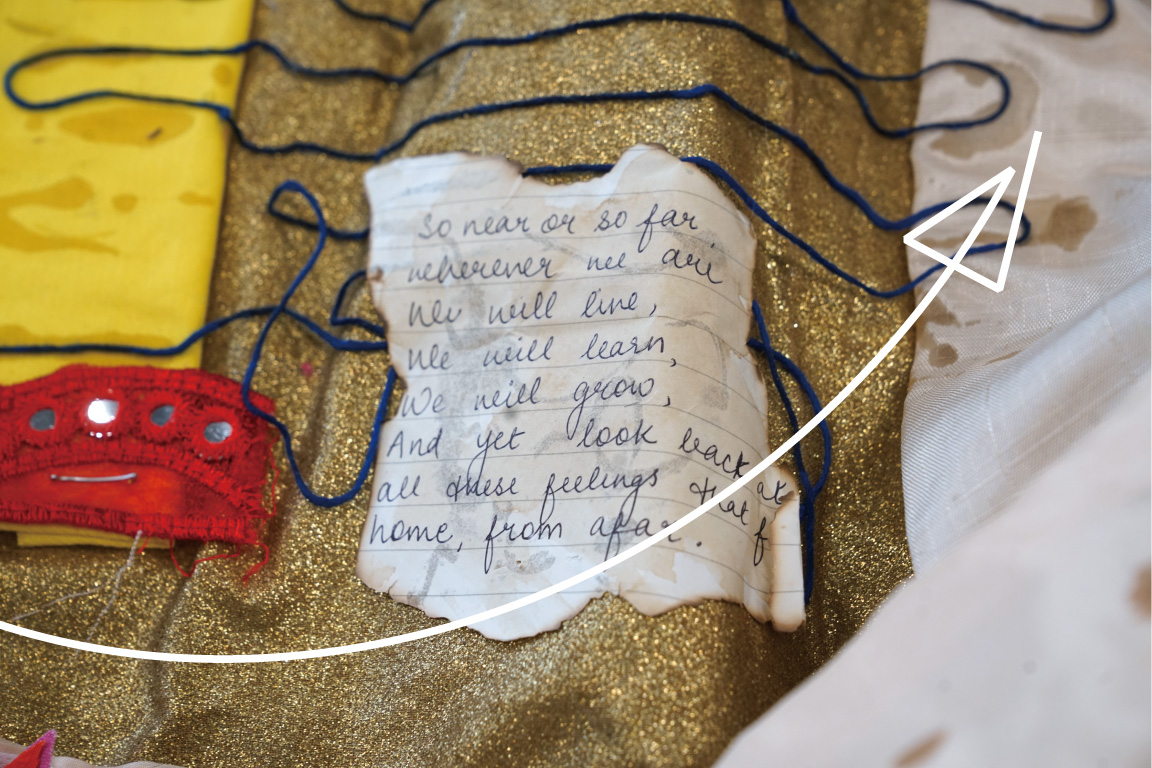 So near or so far,
wherever we are
We will live,
We will learn,
We will grow,
And yet look back at
all these feelings that f
home, from afar.